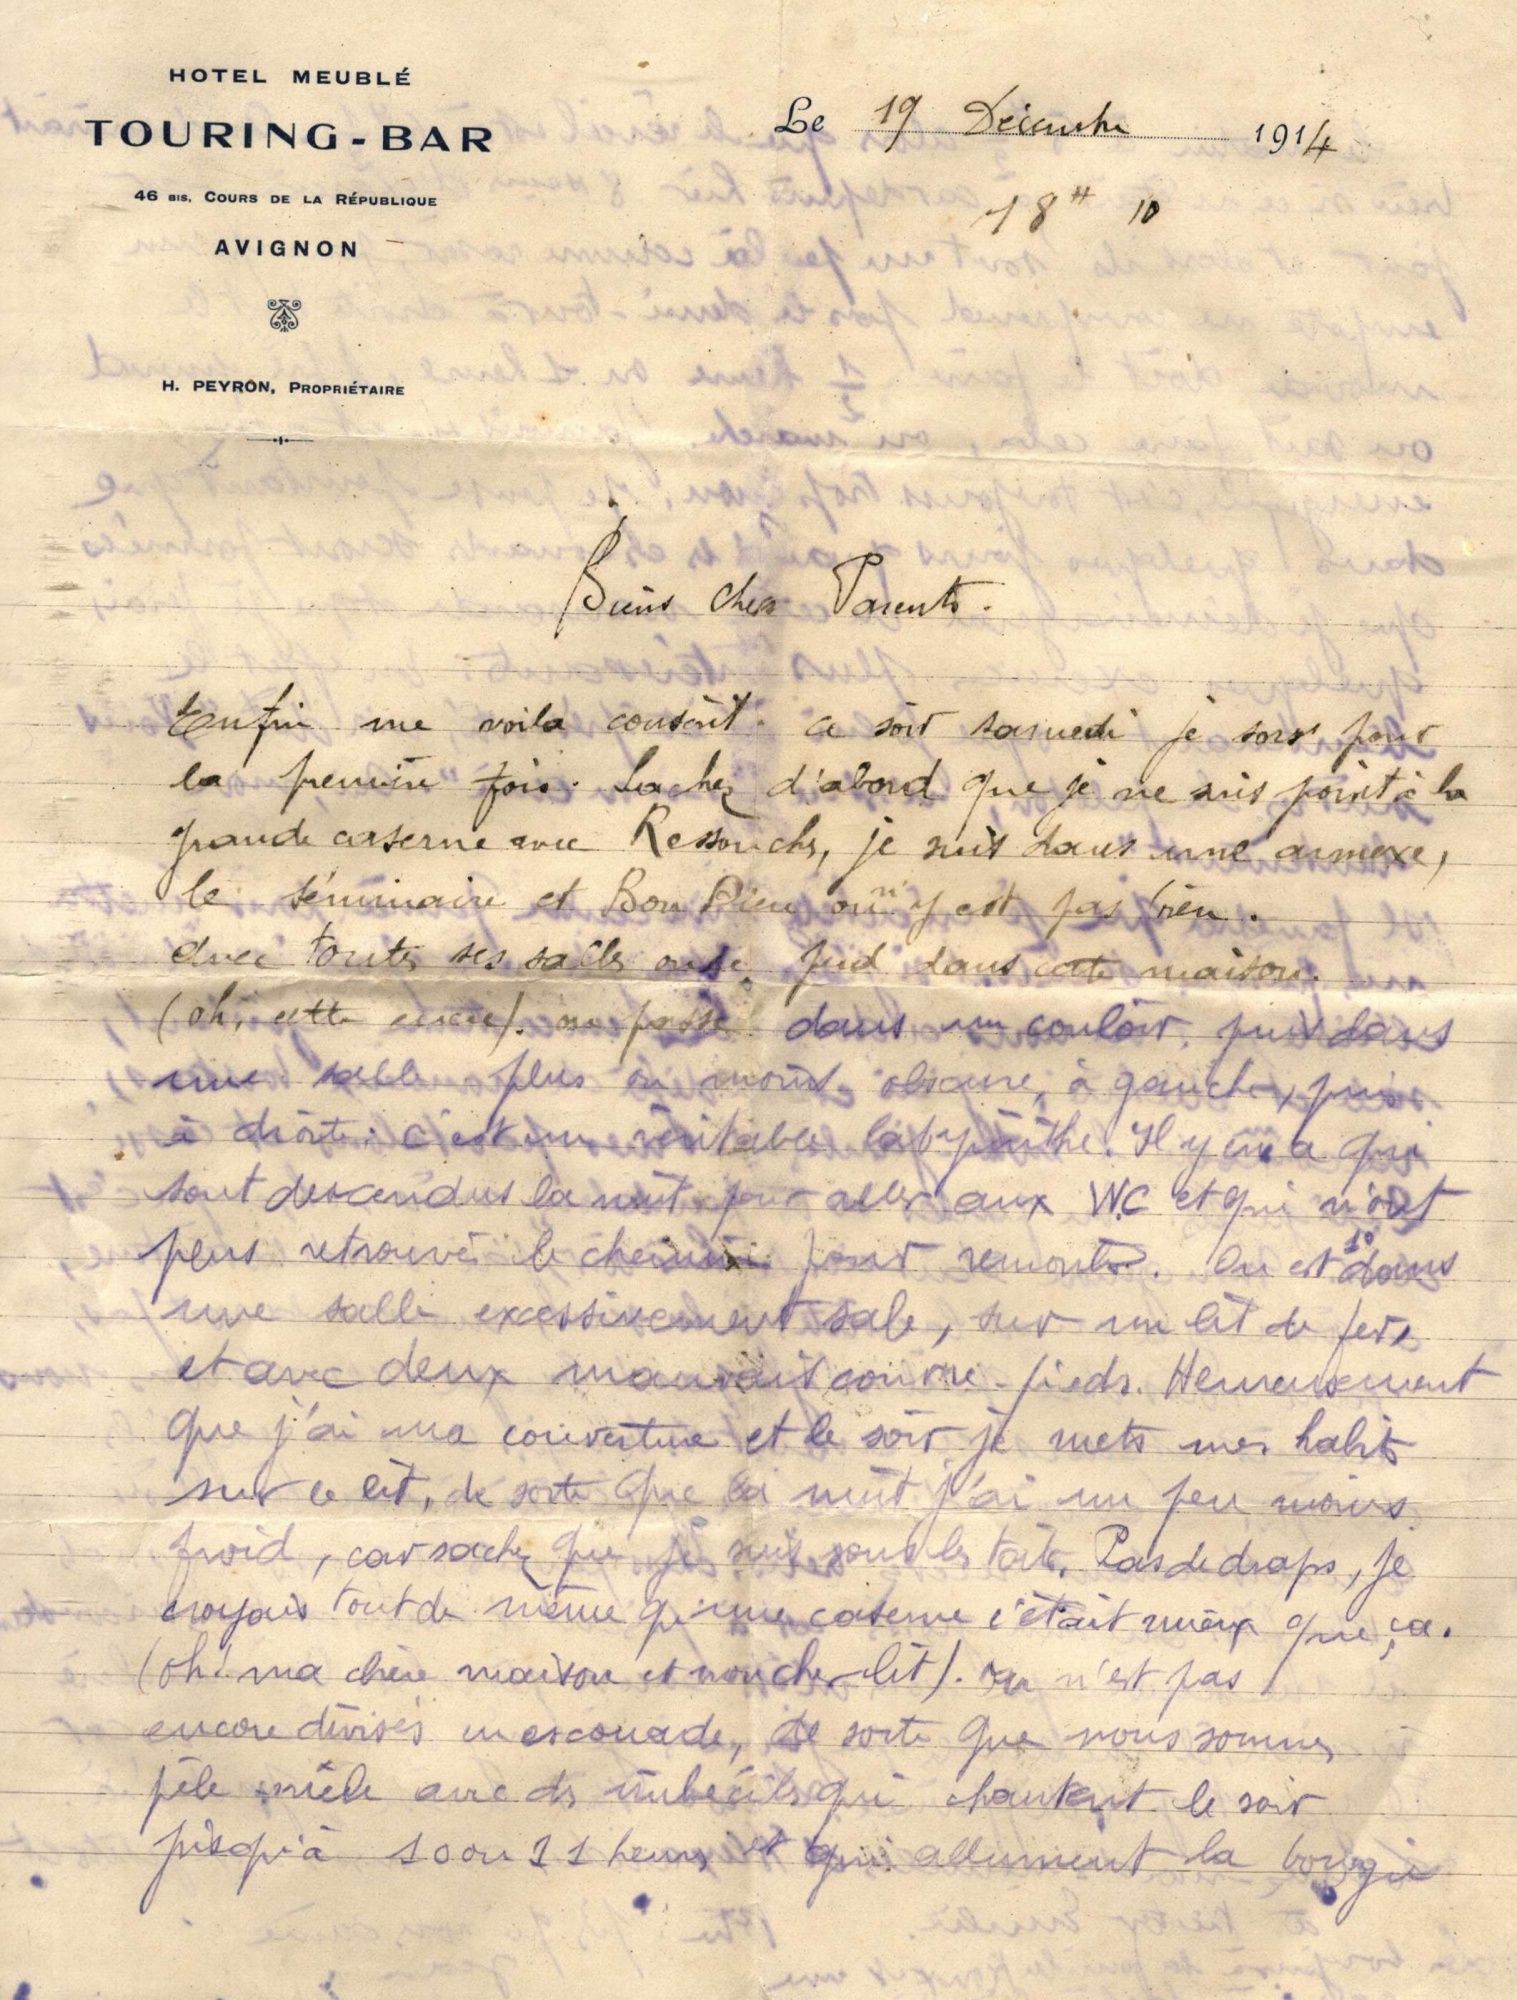 HOTEL MEUBLÉ
TOURING-BAR
46 BIS, COURS DE LA RÉPUBLIQUE
AVIGNON
H. PEYRON, PROPRIÉTAIRE
Le 19 Décembre 1914
18H 10
Biens chers Parents.
Enfin me voila conscrit. Ce soir samedi je sors pour
la première fois. Sachez d'abord que je ne suis point à la
grande caserne avec Ressouche, je suis dans une annexe,
le séminaire et Bon Dieu on n'y est pas bien.
Avec toutes ses salles on se perd dans cette maison.
(oh, cette encre). on passe dans un couloir, puis dans
une salle plus ou moins obscure, à gauche, puis
à droite. C'est un véritable labyrinthe. Il y en a qui
sont descendus la nuit pour aller aux W.C et qui n'ont
plus retrouvé le chemin pour remonter. On est 10 dans
une salle excessivement sale, sur un lit de fer,
et avec deux mauvais couvre-pieds. Heureusement
que j'ai ma couverture et le soir je mets mes habits
sur ce lit, de sorte que la nuit j'ai un peu moins
froid, car sachez que je suis sous les toits. Pas de draps, je
croyais tout de même qu'une caserne c'était mieux que ça.
(oh! ma chère maison et mon cher lit). on n'est pas
encore divisés en escouade, de sorte que nous sommes
pêle mêle avec des imbéciles qui chantent le soir
jusqu'à 10 ou 11 heures et qui allument la bougie